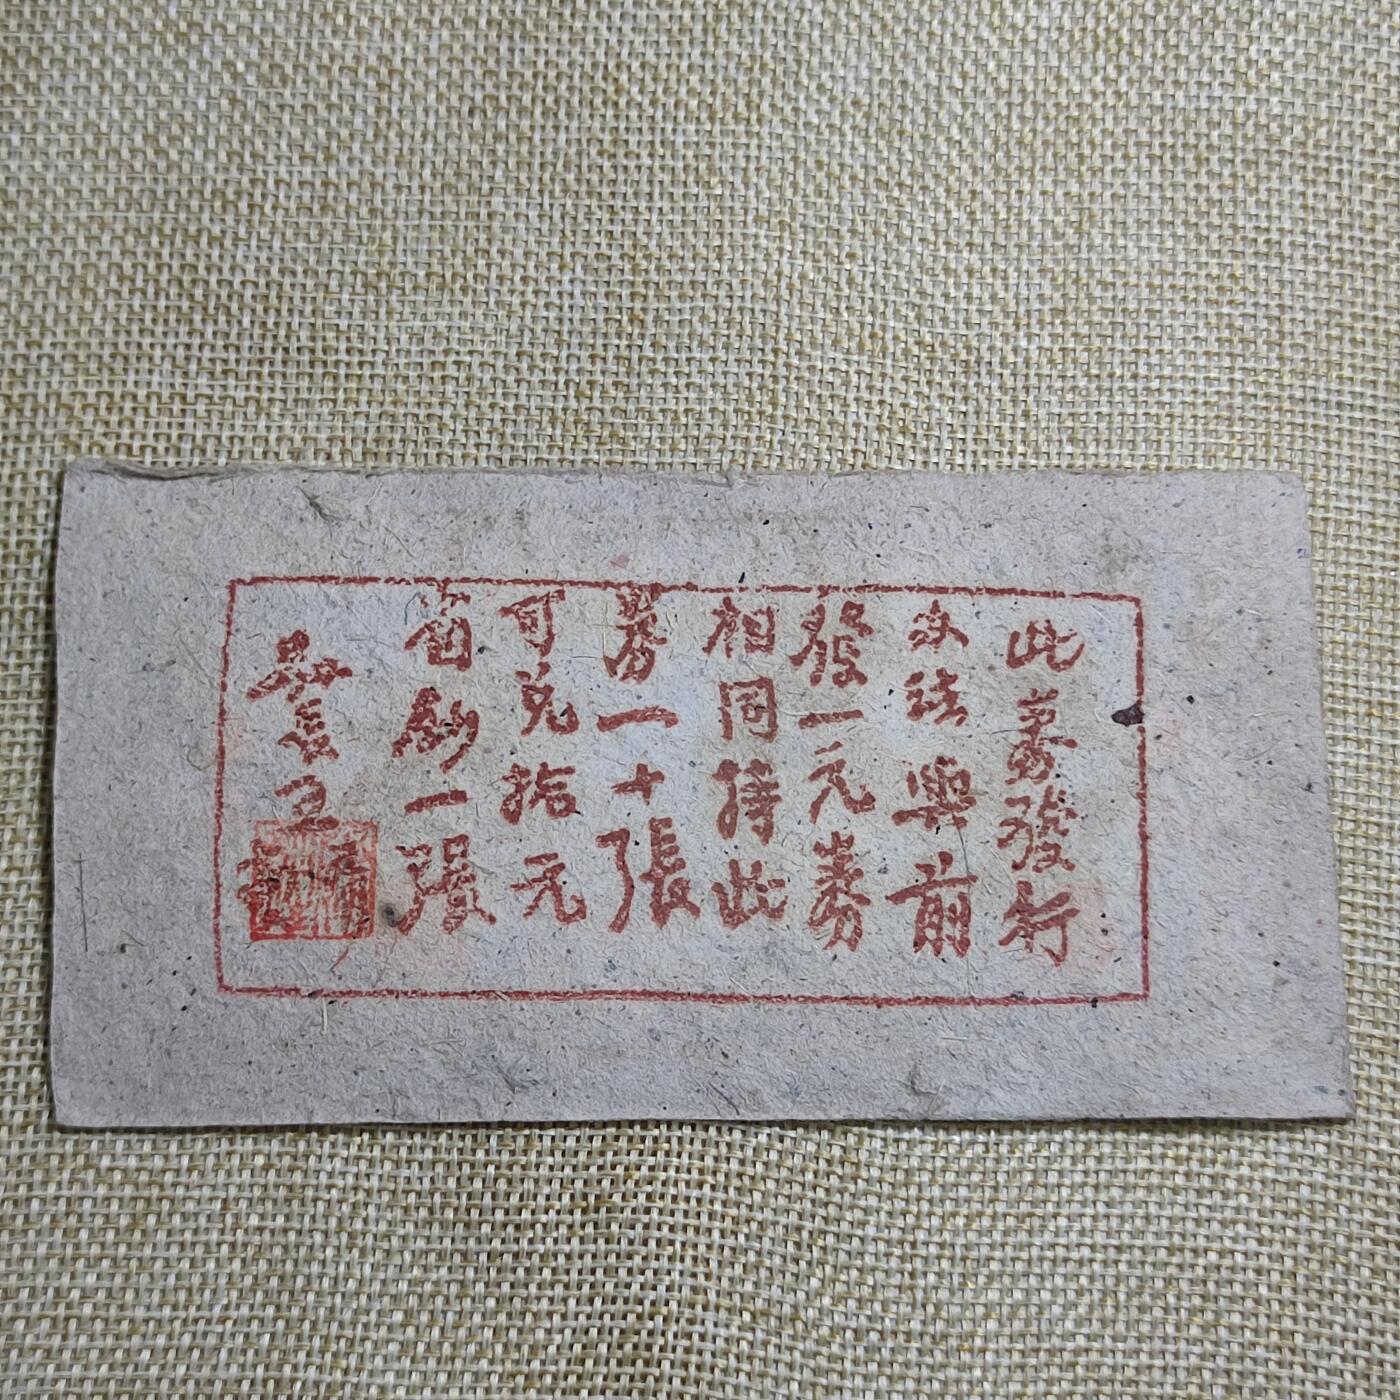 此券發行
办法與前
發一元券
相同持此
券一十張
可兑拾元
省鈔一張